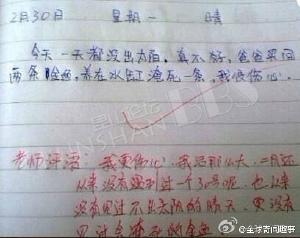 2月30日 星期一 晴
今天一天都没出太阳，真不好，爸爸买回
两条金鱼，养在水缸淹死一条，我很伤心！
老师评语：我更伤心！我活那么大，二月还
从来没有遇到过一个30号呢，也从来
没有见过不出太阳的晴天，更没有
见过会淹死的金鱼
BBS
@全球新闻趣事